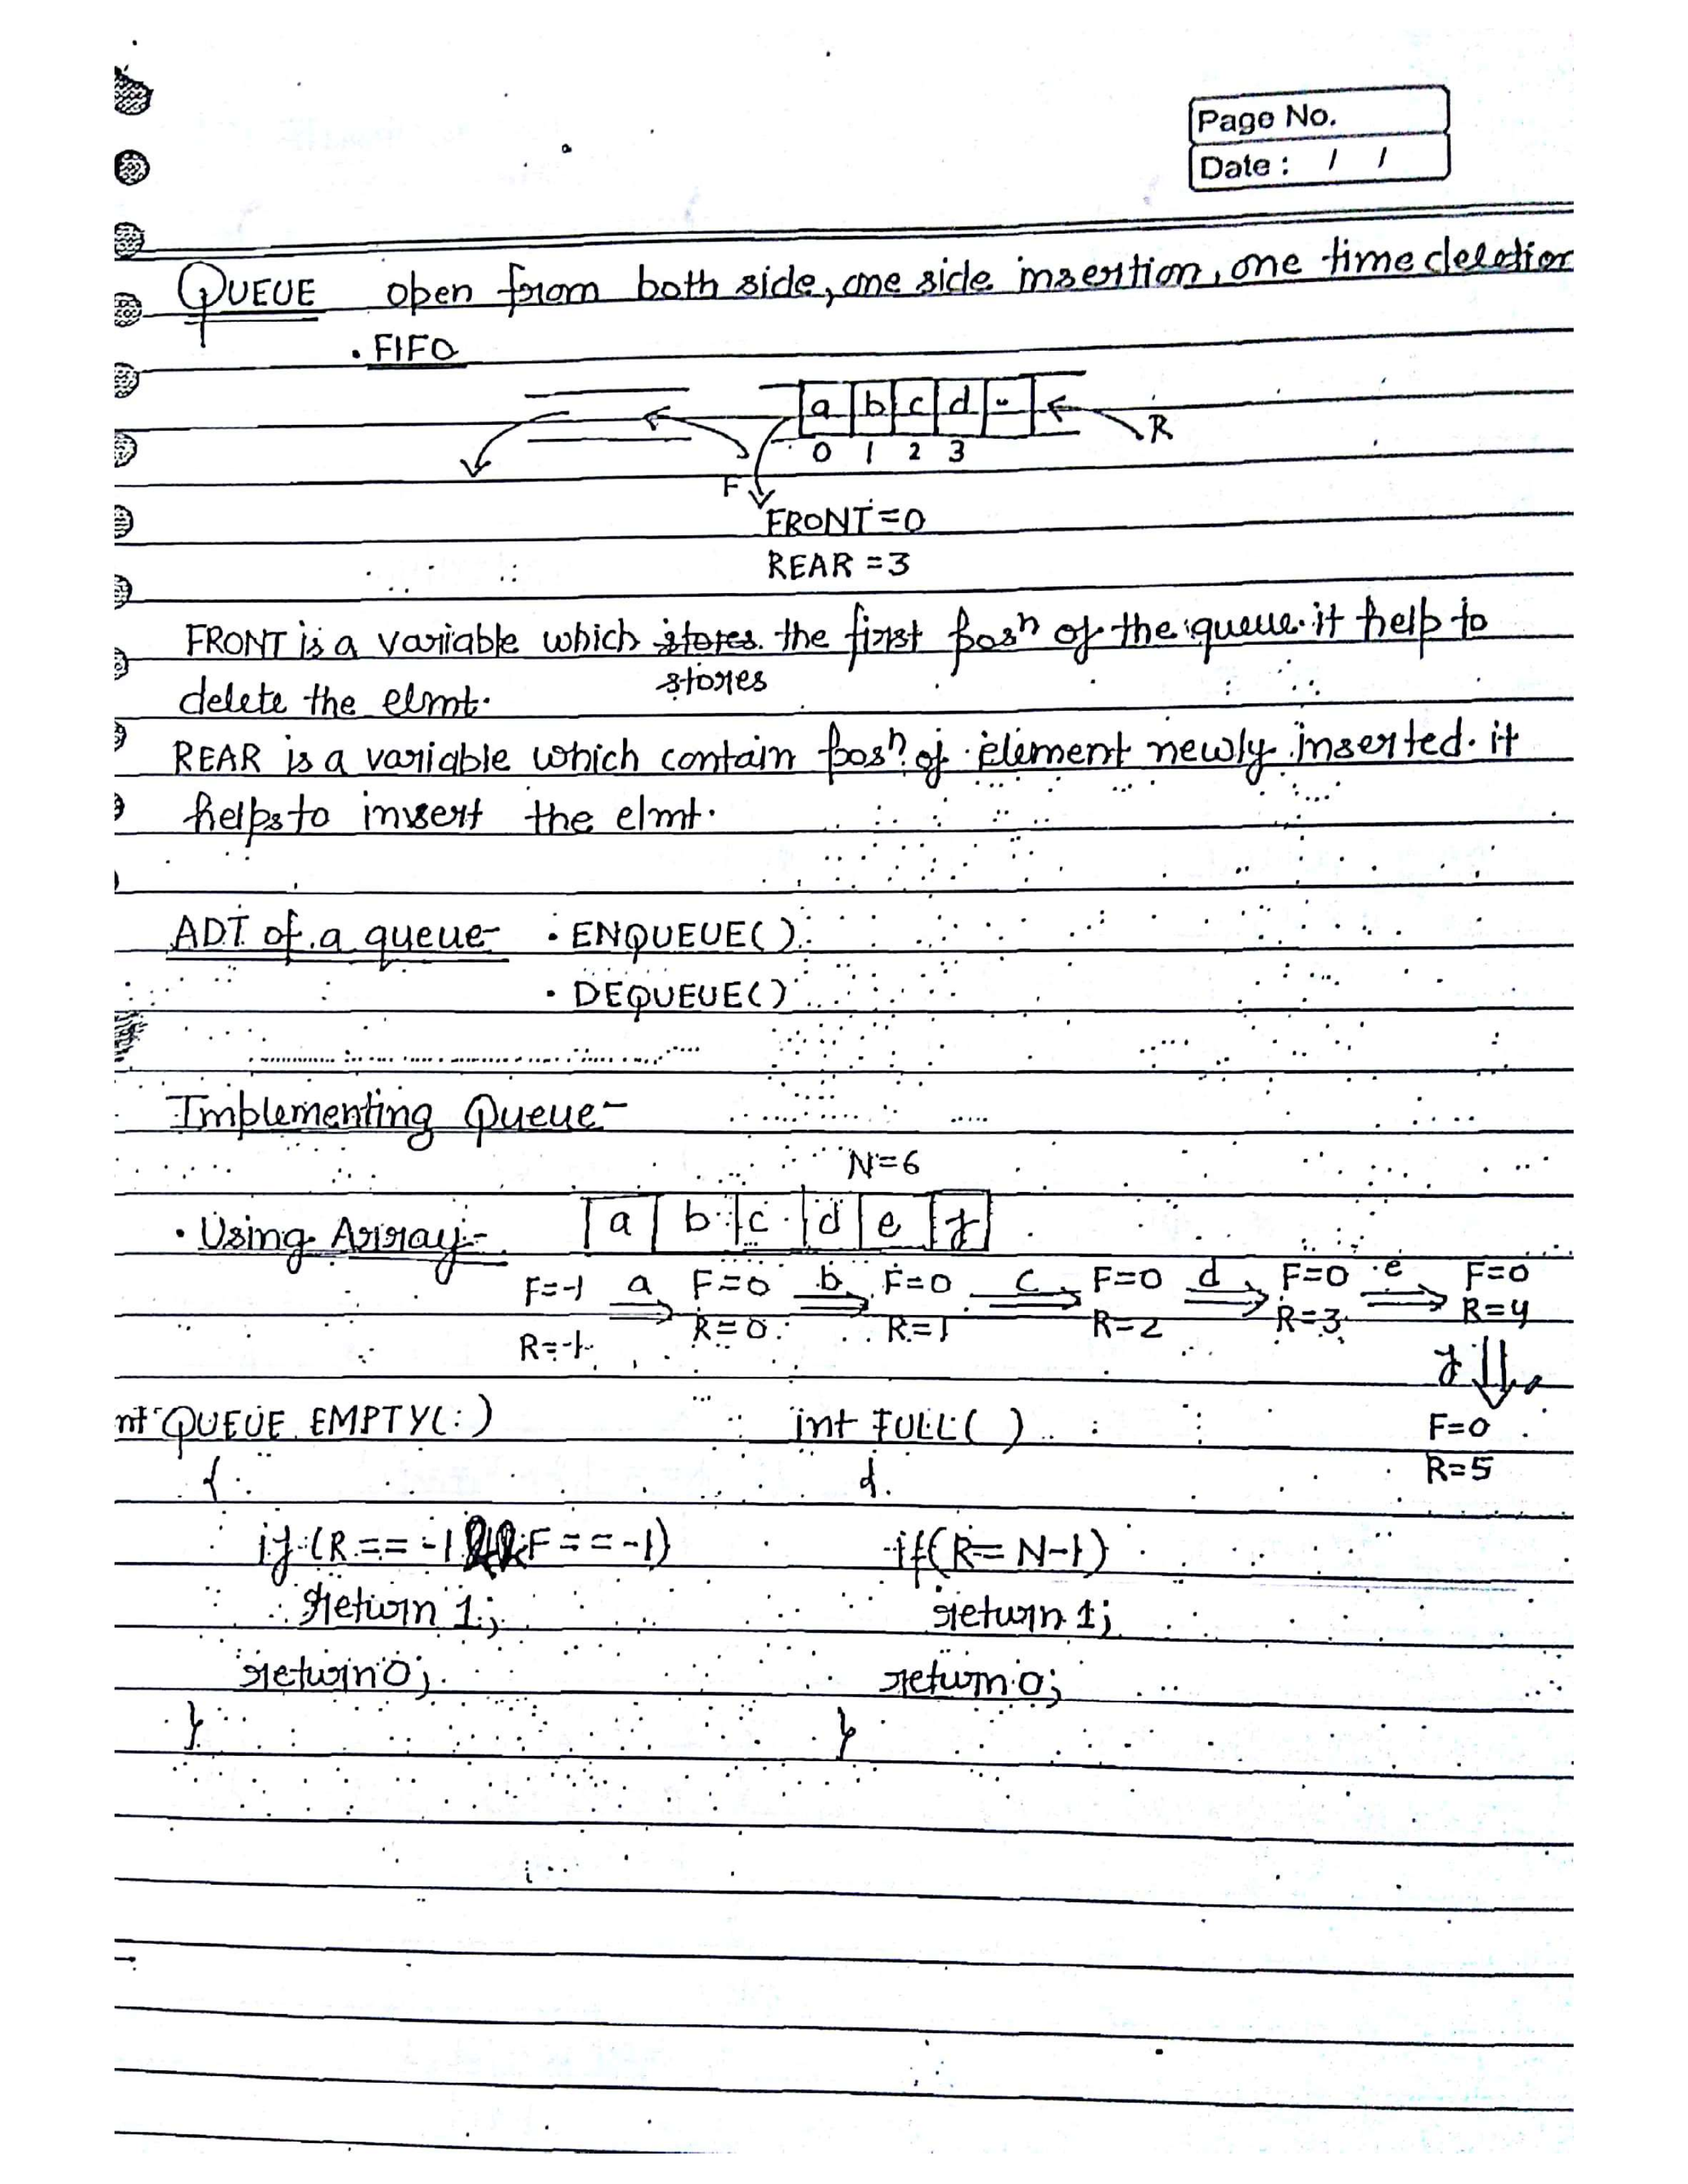 Page No.
Date : / /
QUEUE open from both side, one side insertion, one time deletion
• FIFO
a b c d -
R
0 1 2 3
F
FRONT=0
REAR =3
FRONT is a variable which stores the first posn of the queue. it help to
stores
delete the elmt.
REAR is a variable which contain posn of element newly inserted. it
helps to insert the elmt.
ADT of a queue- • ENQUEUE()
• DEQUEUE()
Implementing Queue-
N=6
• Using Array- a b c d e f
F=-1 a F=0 b F=0 c F=0 d F=0 e F=0
R=-1 R=0 R=1 R=2 R=3 R=4
f
nt QUEUE EMPTY() int FULL() F=0
{ { R=5
if (R == -1 && F == -1) if(R= N-1)
return 1; return 1;
return 0; return 0;
} }